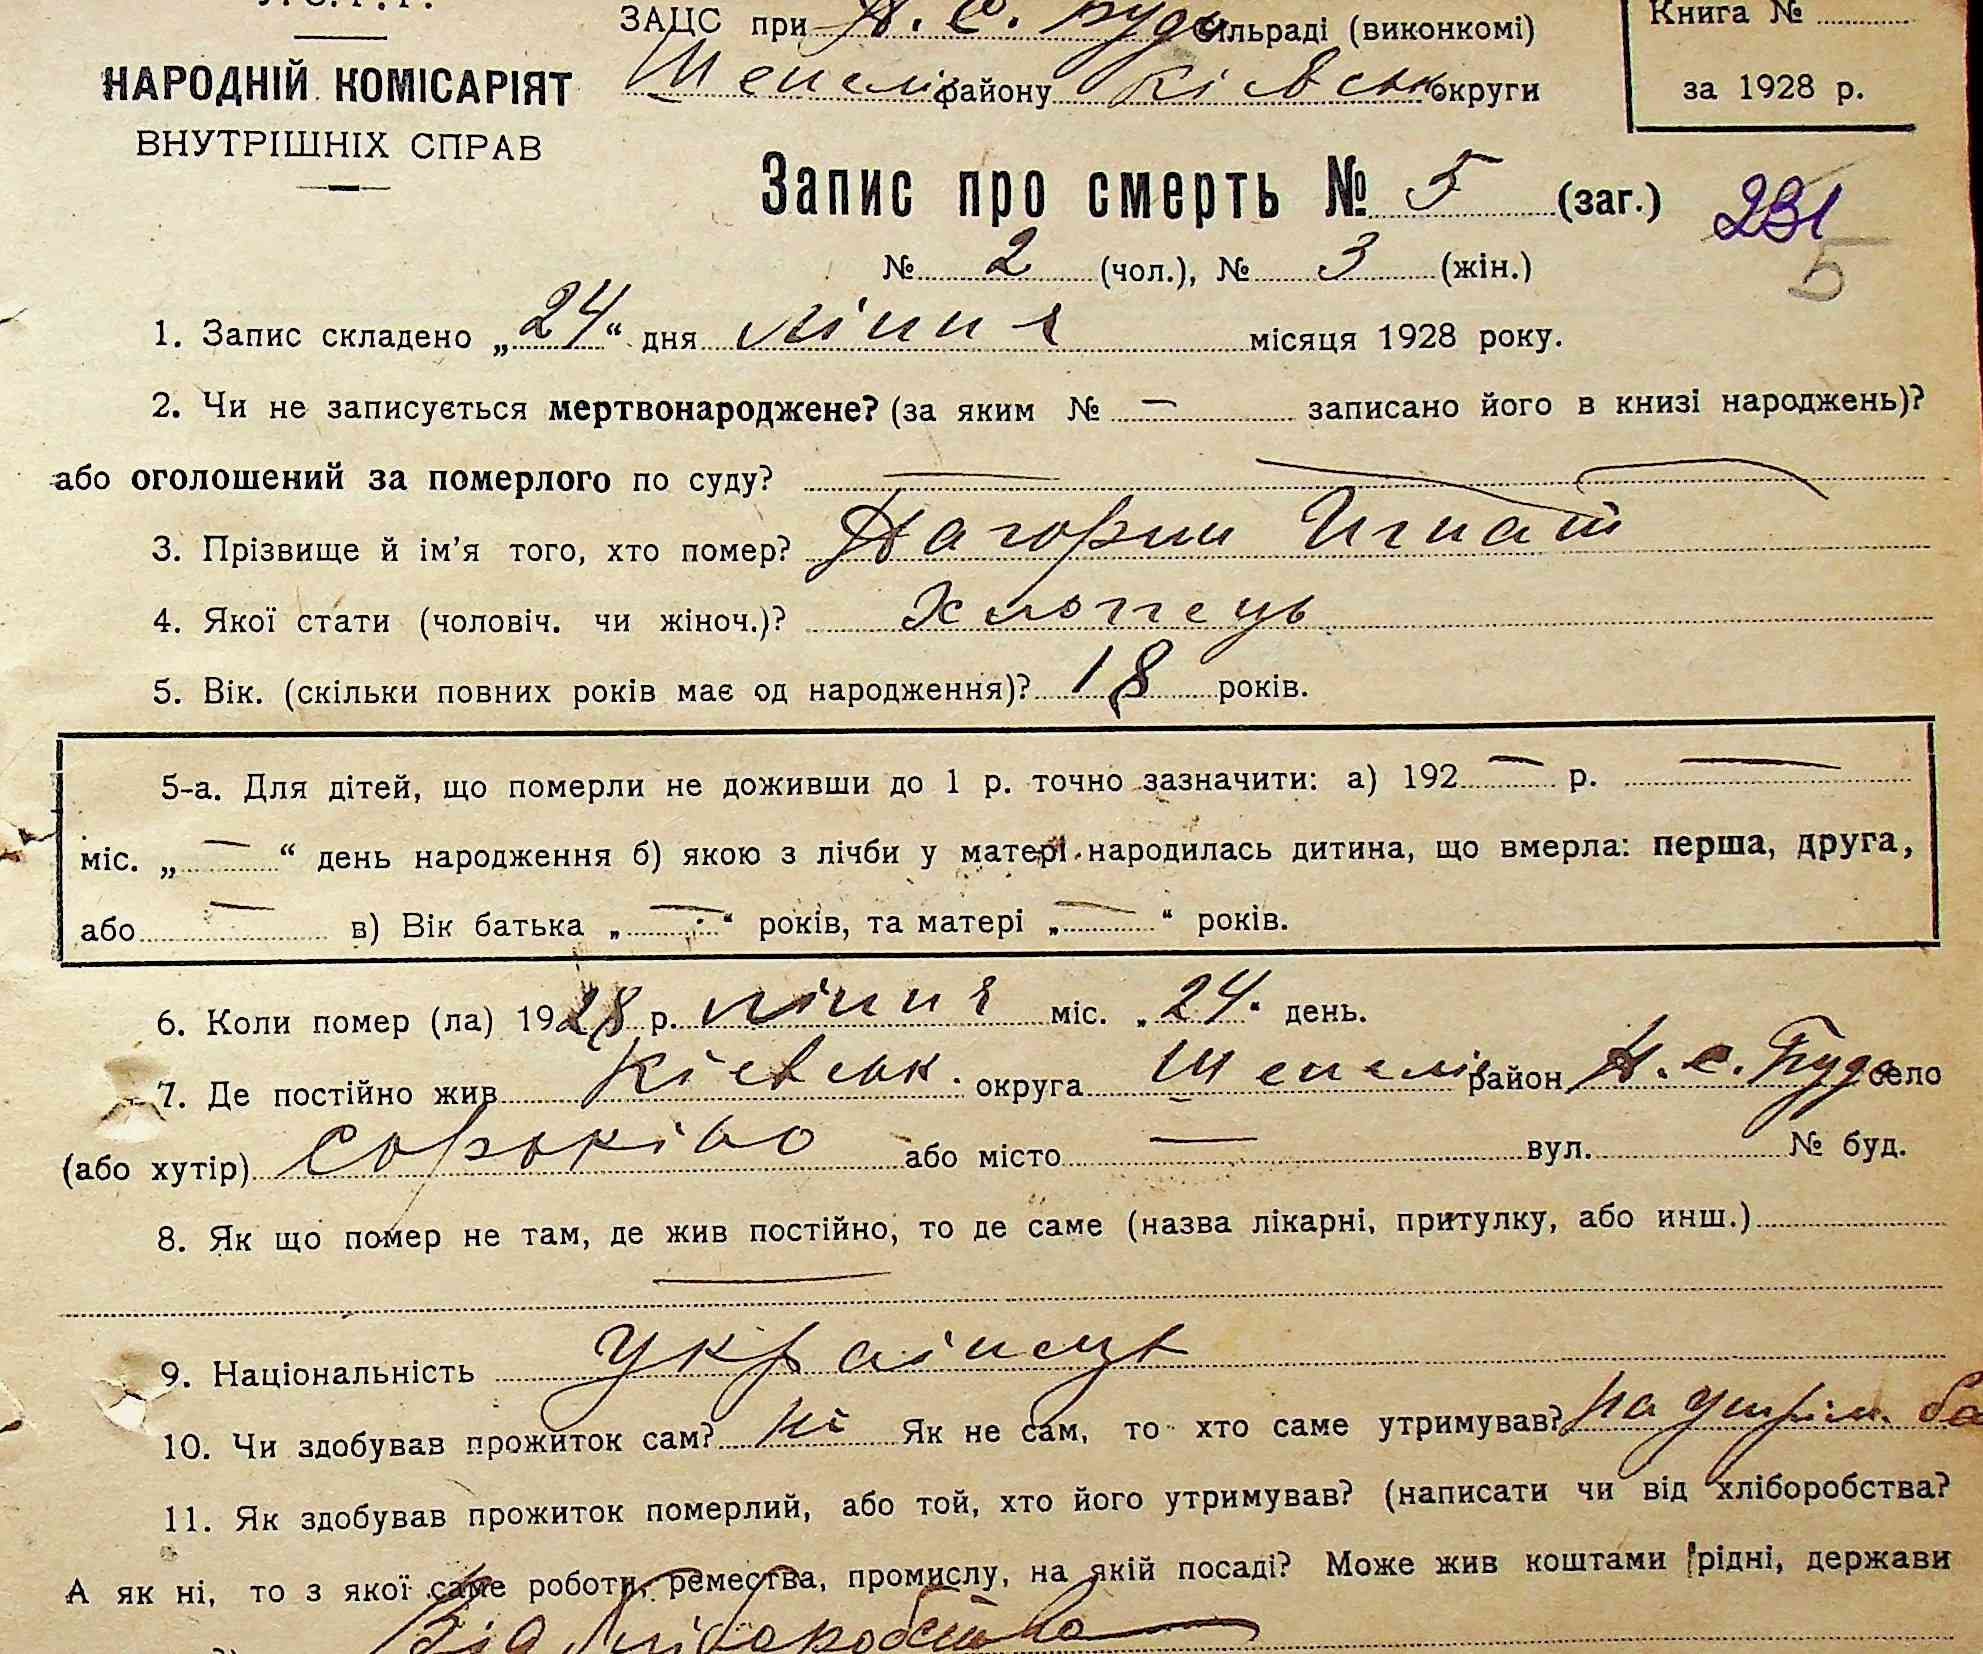 ЗАЦС при Н. С. Буда сільраді (виконкомі)
Книга №
НАРОДНІЙ КОМІСАРІЯТ
Шепеліц району Кієвськ округи
за 1928 р.
ВНУТРІШНІХ СПРАВ
Запис про смерть № 5 (заг.) 231
№ 2 (чол.), № 3 (жін.) 5
1. Запис складено „24“ дня липня місяця 1928 року.
2. Чи не записується мертвонароджене? (за яким № — записано його в книзі народжень)?
або оголошений за померлого по суду? —
3. Прізвище й ім'я того, хто помер? Нагорни Игнат
4. Якої стати (чоловіч. чи жіноч.)? Хлопець
5. Вік. (скільки повних років має од народження)? 18 років.
5-а. Для дітей, що померли не доживши до 1 р. точно зазначити: а) 192 — р. —
міс. „ — “ день народження б) якою з лічби у матері народилась дитина, що вмерла: перша, друга,
або — в) Вік батька „ — “ років, та матері „ — “ років.
6. Коли помер (ла) 1928 р. липня міс. „24“ день.
7. Де постійно жив Кієвськ. округа Шепеліц район Н. С. Буда село
(або хутір) Сороківо або місто — вул. № буд.
8. Як що помер не там, де жив постійно, то де саме (назва лікарні, притулку, або инш.)
—
9. Національність Українець
10. Чи здобував прожиток сам? ні Як не сам, то хто саме утримував? на утрім. ба
11. Як здобував прожиток померлий, або той, хто його утримував? (написати чи від хліборобства?
А як ні, то з якої саме роботи, ремества, промислу, на якій посаді? Може жив коштами рідні, держави
Від хліборобства